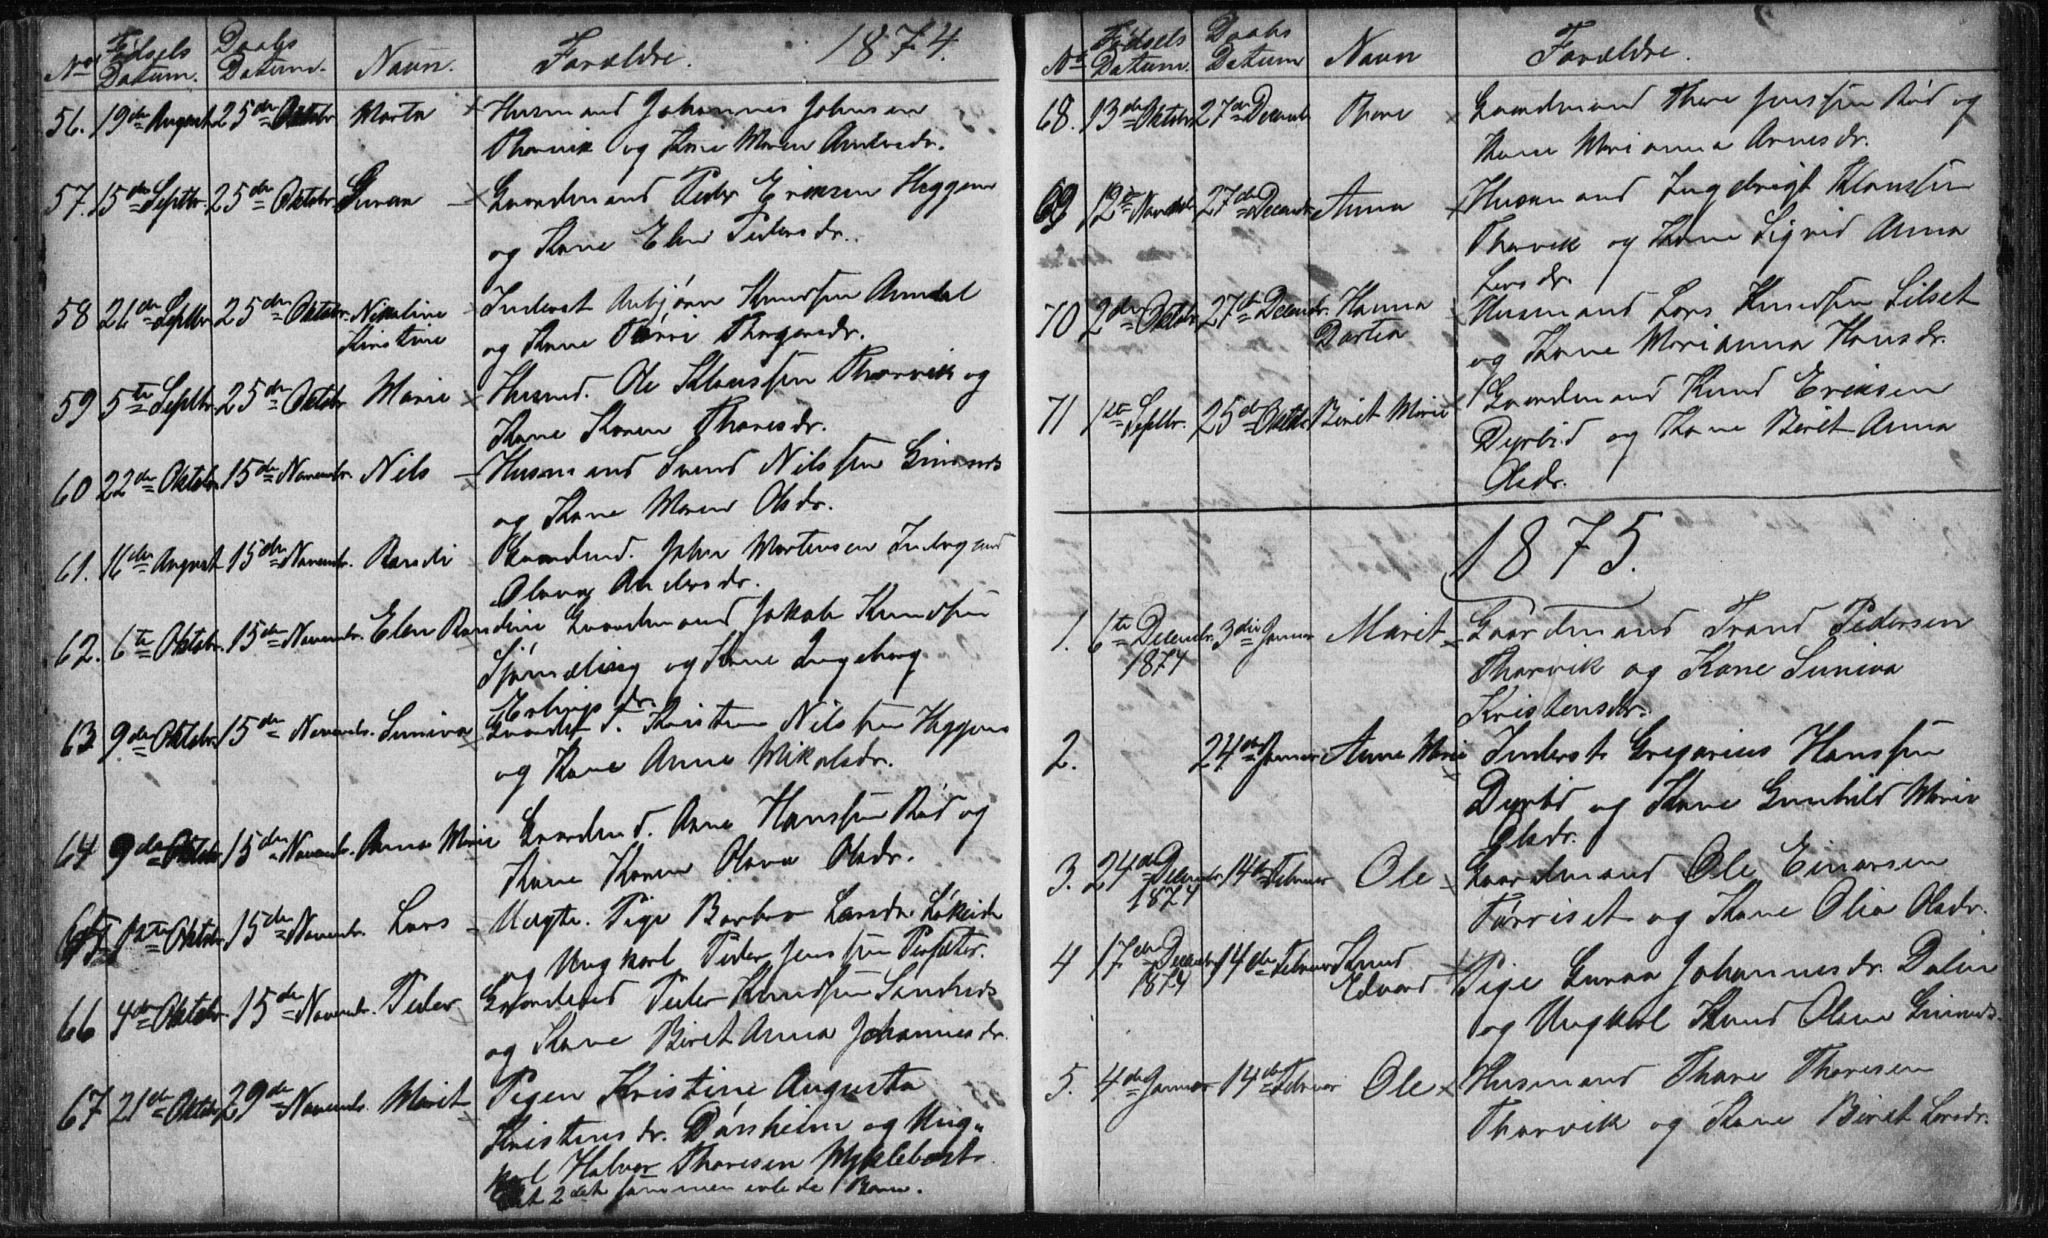 1874.
No Fødsels Datum. Daabs Datum. Navn. Forældre.
56. 19de August 25de Oktobr Marta Husmand Johannes Johnsen
Tharvik og Kone Maren Andersdr.
57. 15de Septbr. 25de Oktobr. Guraa Gaardmand Peder Eriksen Heggem
og Kone Elen Pedersdr.
58 26de Septbr 25de Oktobr. Nikoline Inderst Asbjørn Knudsen
Kirstine og Kone
59 5te Septbr. 25de Oktobr Marie Husmd. Ole Klaussen Tharvik og
Kone Karen Tharesdr.
60 22de Oktobr. 15de Novembr. Nils Husmand Svend Nilssen Gimnes
og Kone Maren Olsdr.
61. 16de August 15de Novembr. Randi Gaardmd. John Mortensen
Olava Andersdr.
62. 6te Oktobr. 15de Novembr. Elen Randine Gaardmand Jakob Knudsen
og Kone Ingeborg
Erlingsdr.
63 9de Oktobr. 15de Novembr. Suniva Kristen Nilssen Heggem
og Kone Anne Mikalsdr.
64 9de Oktobr. 15de Novembr. Anna Marie Gaardmd. Arne Hanssen Rød og
Kone Karen Olava Olsdr.
65 Oktobr. 15de Novembr. Lars Uægte. Pige Barbro Larsdr.
og Ungkarl Peder Jenssen
66 4de Oktobr. 15de Novembr. Peder Peder Knudsen Sandnes
og Kone Beret Anna Johannesdr.
67 21de Oktobr 29de Novembr. Marit Pigen Kristine Augusta
Kristensdr. og Ung-
karl Halvor Tharesen Myklebost.
Det 2det sammen avlede Barn.
No Fødsels Datum. Daabs Datum Navn Forældre.
68. 13de Oktobr. 27de Decembr Thore Gaardmand Thore Jenssen Rød og
Kone Marianna Arnesdr.
69 12te Novembr 27de Decembr. Anna Husmand Ingebrigt Klaussen
Tharvik og Kone Sigrid Anna
Larsdr.
70 2den Oktobr 27de Decembr. Hanna Husmand Lars Knudsen Silset
Dortea og Kone Marianna Hansdr.
71 1ste Septbr. 25de Oktbr Beret Marie Gaardmand Knud Eriksen
Dyrlid og Kone Beret Anna
Olsdr.
1875.
1. 6te Decembr. 3die Januar Marit Gaardmand Trond Pedersen
1874 Tharvik og Kone Suniva
Kristensdr.
2. 24de Januar Anne Marie Inderst Gregorius Hanssen
Dyrlid og Kone Gunhild Marie
Olsdr.
3. 24de Decembr 14de Februar Ole Gaardmand Ole Einarsen
1874 Torriset og Kone Olia Olsdr.
4 17de Decembr 14de Februar Knud Pige Guraa Johannesdr. Dalen
1874 Edvard og Ungkarl Knud Olsen Gimnes.
5. 4de Januar 14de Februar Ole Husmand Thore Thoresen
Tharvik og Kone Beret Larsdr.